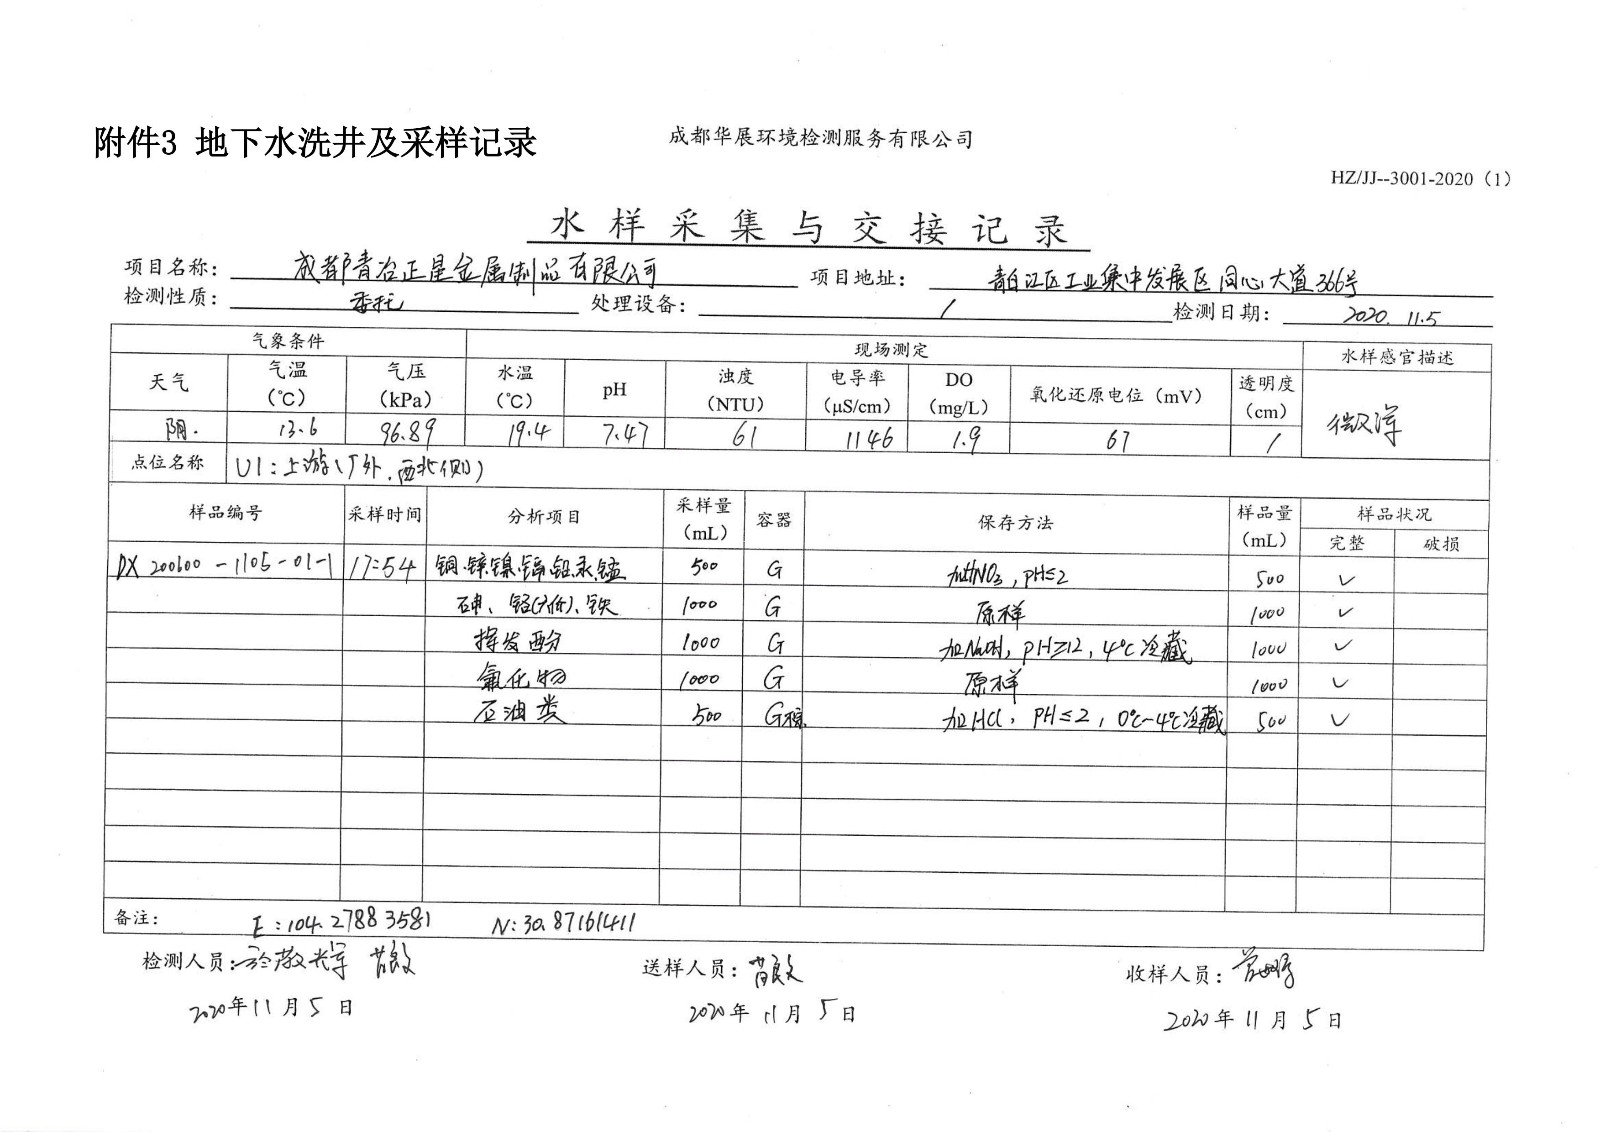 附件3 地下水洗井及采样记录
成都华展环境检测服务有限公司
HZ/JJ--3001-2020（1）
水样采集与交接记录
项目名称： 成都青冶正星金属制品有限公司 项目地址： 青白江区工业集中发展区同心大道366号
检测性质： 委托 处理设备： / 检测日期： 2020.11.5
气象条件 现场测定 水样感官描述
天气 气温（℃） 气压（kPa） 水温（℃） pH 浊度（NTU） 电导率（μS/cm） DO（mg/L） 氧化还原电位（mV） 透明度（cm）
阴. 13.6 96.89 19.4 7.47 61 1146 1.9 67 / 微浑
点位名称 U1：上游（厂外，西北侧）
样品编号 采样时间 分析项目 采样量（mL） 容器 保存方法 样品量（mL） 样品状况
完整 破损
DX200600-1105-01-1 17:54 铜、锌、镍、镉、铅、汞、锰 500 G 加HNO3，pH≤2 500 ✓
砷、铬(六价)、铁 1000 G 原样 1000 ✓
挥发酚 1000 G 加NaOH，pH≥12，4℃冷藏 1000 ✓
氟化物 1000 G 原样 1000 ✓
石油类 500 G棕 加HCl，PH≤2，0℃~4℃冷藏 500 ✓
备注： E：104.27883581 N：30.87161411
检测人员： 送样人员： 收样人员：
2020年11月5日 2020年11月5日 2020年11月5日